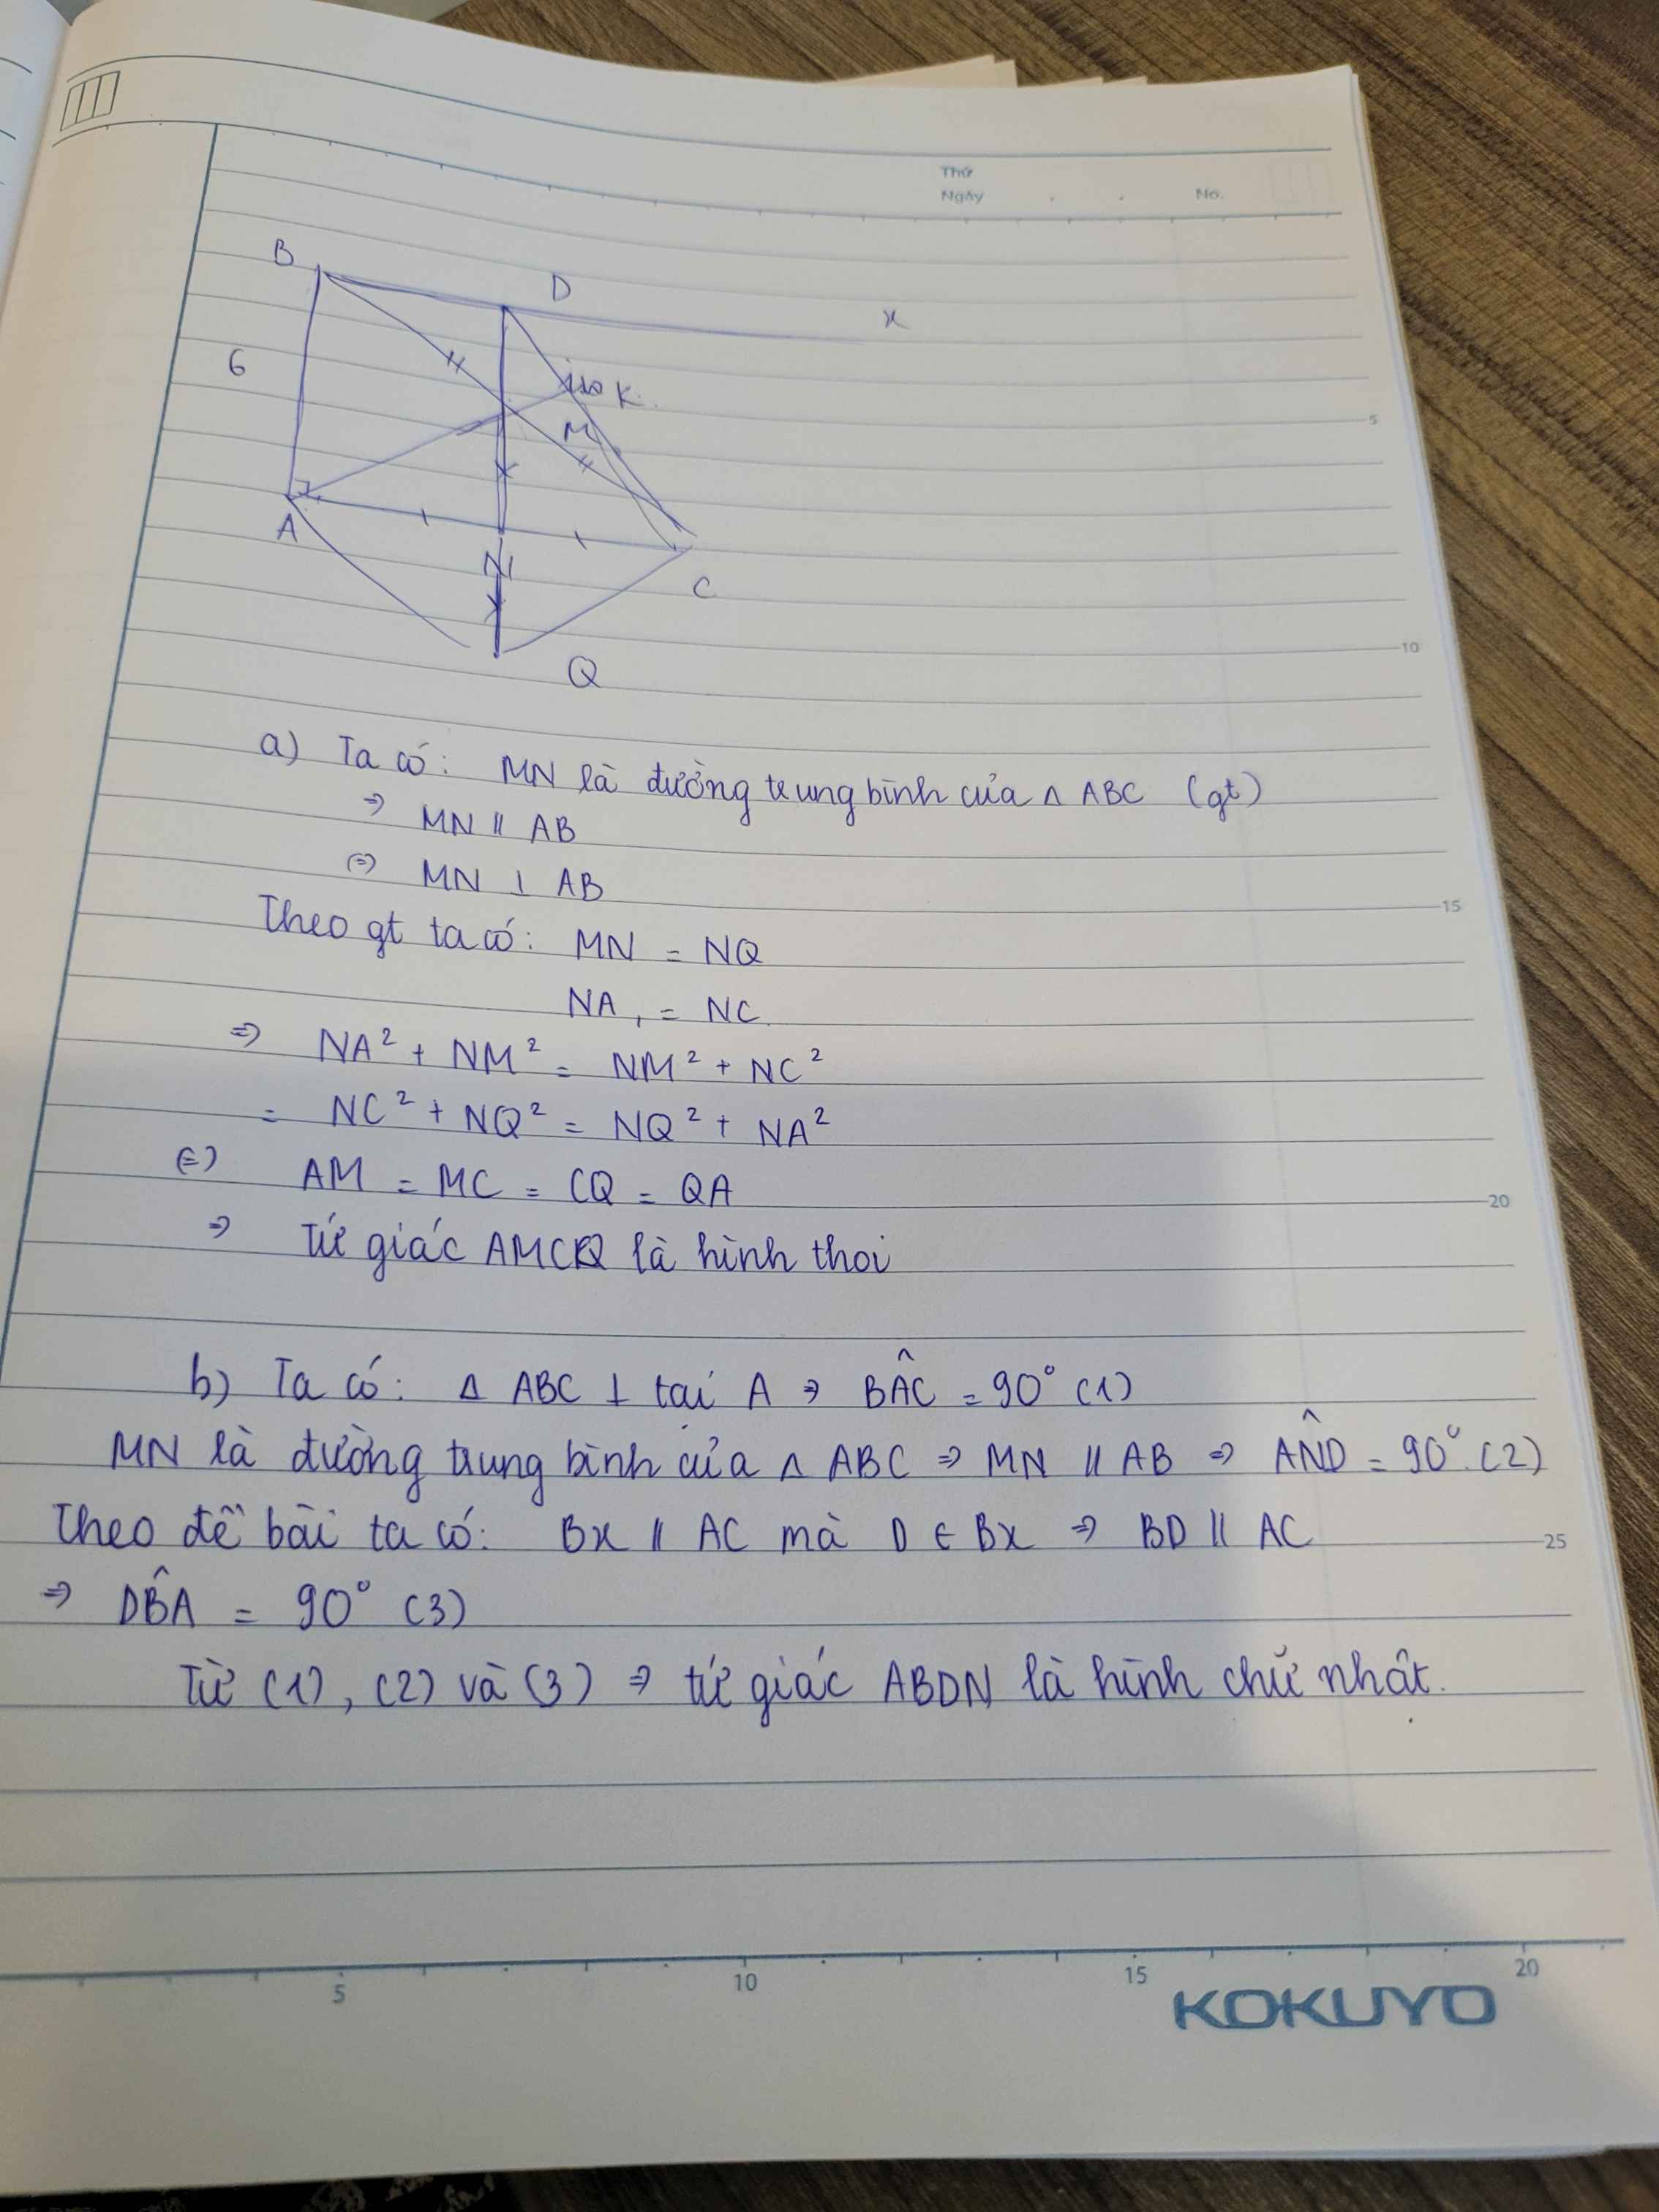 Thứ
Ngày . . No.
B
D
x
6
K
M
A
N
C
Q
5
10
a) Ta có: MN là đường trung bình của Δ ABC (gt)
⇒ MN // AB
⇔ MN ⊥ AB
15
Theo gt ta có: MN = NQ
NA = NC
⇒ NA² + NM² = NM² + NC²
= NC² + NQ² = NQ² + NA²
⇔ AM = MC = CQ = QA
20
⇒ Tứ giác AMCQ là hình thoi
b) Ta có: Δ ABC ⊥ tại A ⇒ BÂC = 90° (1)
MN là đường trung bình của Δ ABC ⇒ MN // AB ⇒ AN̂D = 90° (2)
Theo đề bài ta có: Bx // AC mà D ∈ Bx ⇒ BD // AC
25
⇒ DB̂A = 90° (3)
Từ (1), (2) và (3) ⇒ tứ giác ABDN là hình chữ nhật.
5 10 15 20
KOKUYO